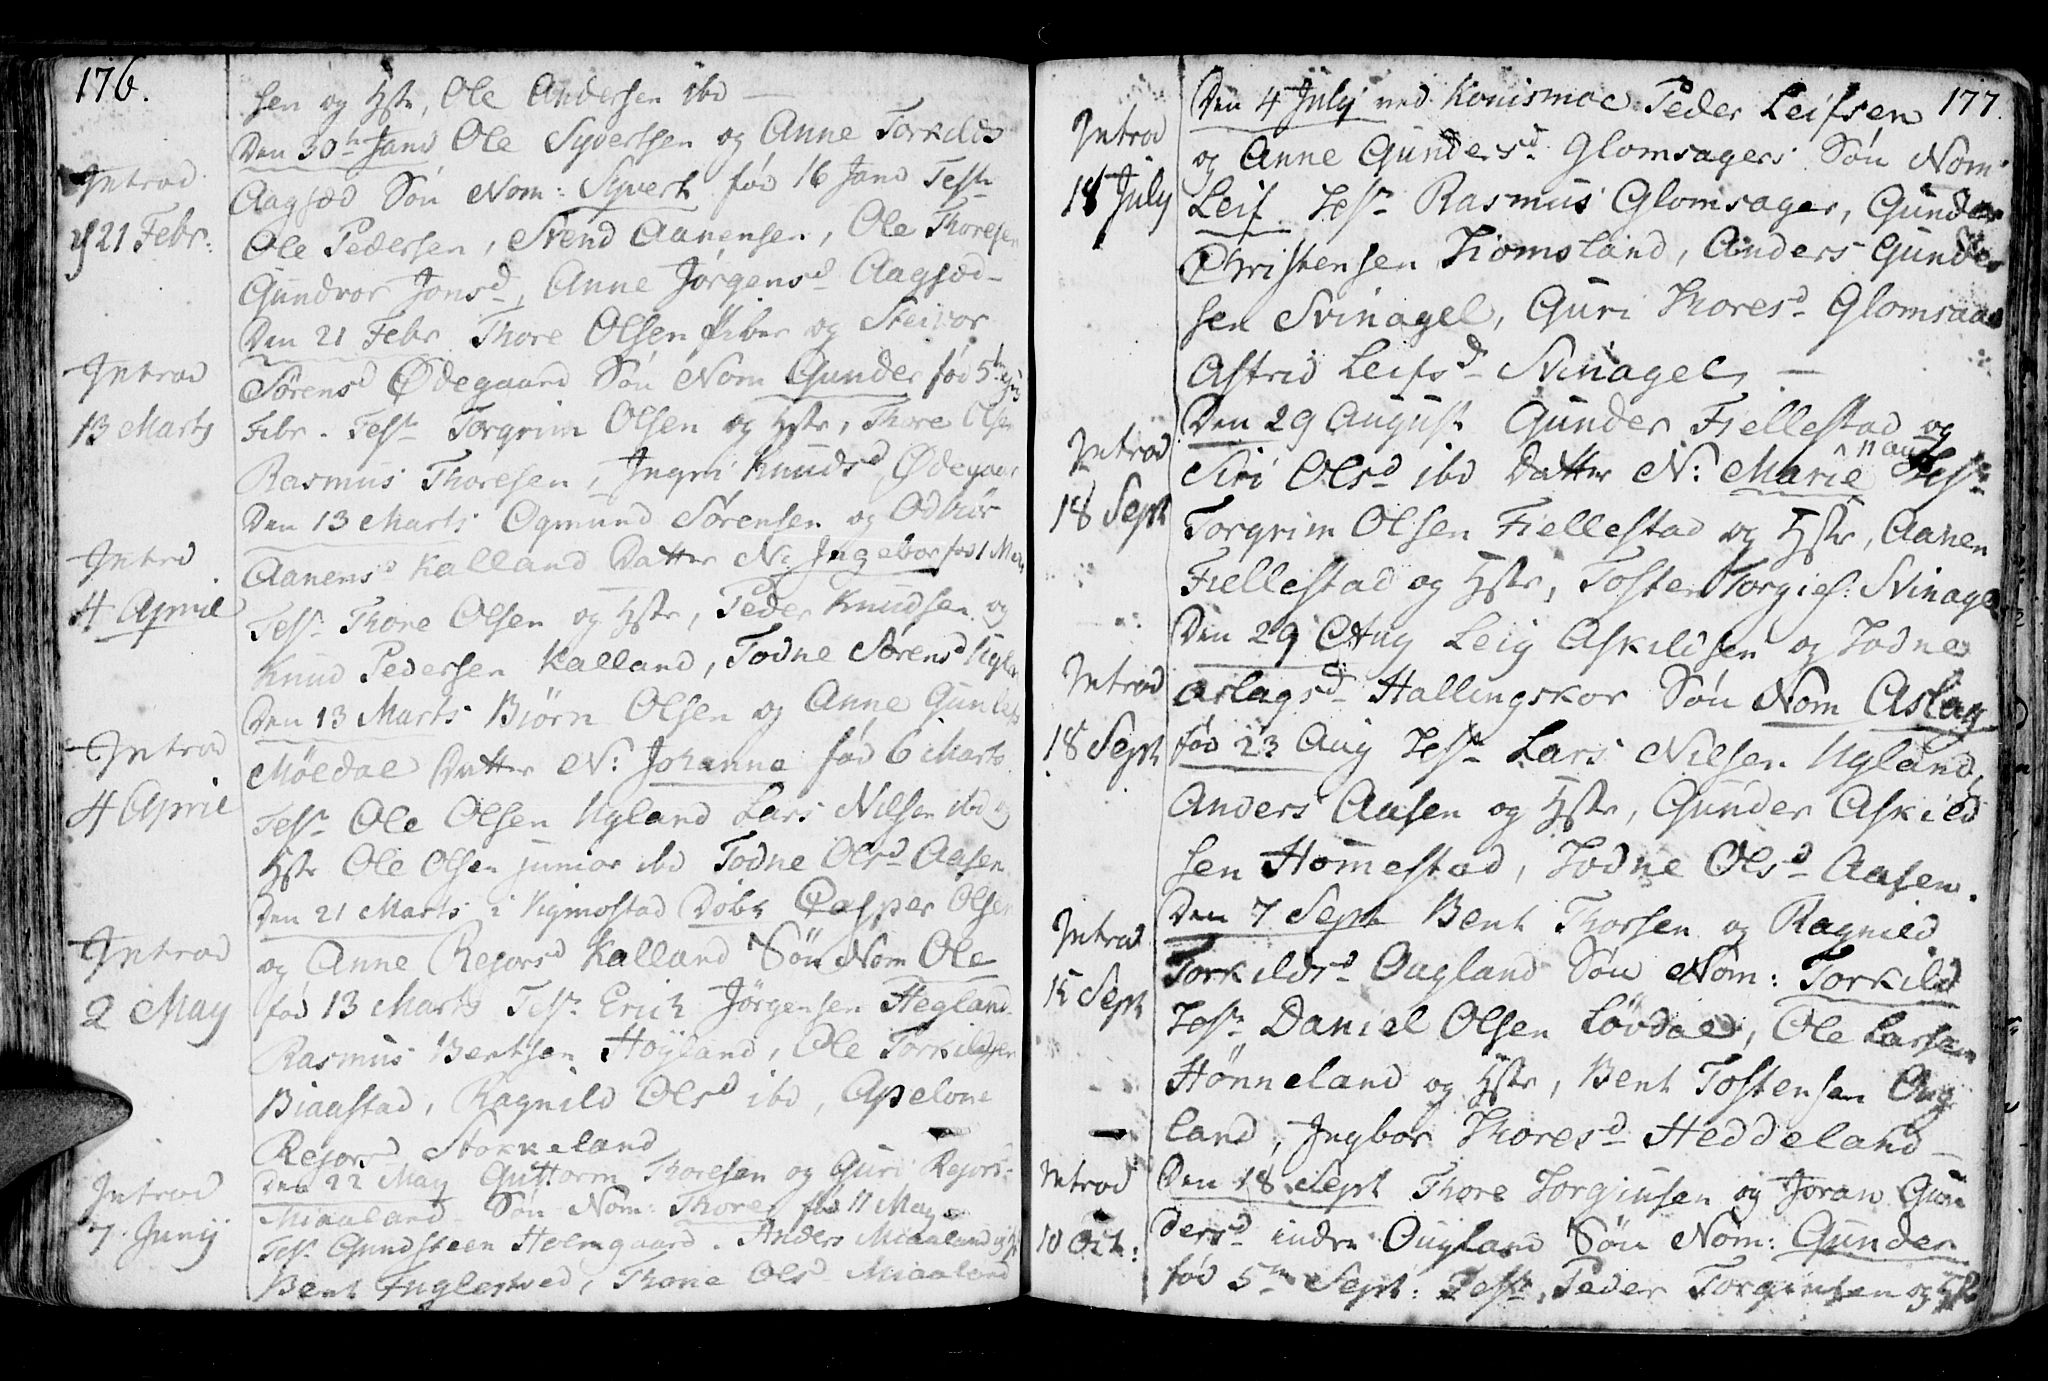 176.
sen og Hstr, Ole Andersen ibd —
Den 30th Janv Ole Syvertsen og Anne Torkilds
Introd
d 21 Febr:
Aagsæd Søn Nom: Syvert fød 16 Janv Test
Ole Pedersen, Svend Aanensen, Ole Thoresen
Gundvor Jonsd, Anne Jørgensd Aagsæd —
Den 21 Febr Thore Olsen Piber og Steinor
Introd
13 Marts
Sørensd Ødegaard Søn Nom Gunder fød 5th
Febr. Test Torgrim Olsen og Hstr, Thore Olsen
Rasmus Thoresen, Ingri Knudsd Ødegaar
Den 13 Marts Ogmund Sørensen og Odbiør
Introd
4 April
Aanensd Kalland Datter N: Ingebor fød 1 Mar
Test Thore Olsen og Hstr, Peder Knudsen og
Knud Pedersen Kalland, Todne Sørensd Ugland
Den 13 Marts Biørn Olsen og Anne Gunlefs
Introd
4 April
Møedal Datter N: Johanna fød 6 Marts
Test Ole Olsen Ugland Lars Nilsen ibd og
Hstr Ole Olsen junior ibd Todne Olsd Aasen
Den 21 Marts i Vigmostad Døbt Casper Olsen
Introd
2 May
og Anne Rejorsd Kalland Søn Nom Ole
fød 13 Marts Test Erich Jørgensen Hegland
Rasmus Bentsen Høyland, Ole Torkildsen
Biaastad, Ragnild Olsd ibd, Apelone
Rejorsd Stokkeland
Introd
7 Junij
Den 22 May Guttorm Thoresen og Guri Rejors
Miaaland Søn Nom: Thore fød 11 May
Test Gundsteen Holmgaard. Anders Miaaland og Hstr
Bent Fuglestved, Thone Olsd Miaaland
177.
Introd
18 July
Den 4 July ved Konismoe Peder Leifsen
og Anne Gundersd Glomsagers Søn Nom
Leif Test Rasmus Glomsager, Gunder
Christensen Kiomsland, Anders Gunder
sen Svinagel, Guri Thoresd Glomsaa
Astrid Leifsd Svinagel —
Introd
18 Sept
Den 29 August Gunder Fiellestad og
Siri Olsd ibd Datter N: Marie 11 aug Test
Torgrim Olsen Fiellestad og Hstr, Aanen
Fiellestad og Hstr, Tosten Torgies: Svinagel
Introd
18 Sept
Den 29 Aug Leig Askildsen og Todne
Aslagsd Hallingskor Søn Nom Aslag
fød 23 Aug Test Lars Nilsen Ugland,
Anders Aasen og Hstr, Gunder Askild
sen Homestad, Todne Olsd Aasen.
Introd
15 Sept
Den 7 Sept Bent Thorsen og Ragnild
Torkildsd Ougland Søn Nom: Torkild
Test Daniel Olsen Løvdal, Ole Larsen
Hønneland og Hstr, Bent Tostensen Oug
land, Ingbor Thoresd Heddeland —
Introd
10 Oct:
Den 18 Sept Thore Torgiusen og Joran Gun
dersd indre Ougland Søn Nom: Gunder
fød 5te Sept: Test, Peder Torgiusen og Hstr